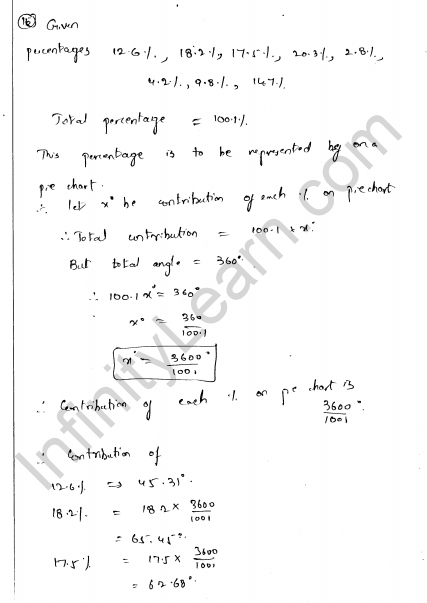 16 Given
percentages 12.6%, 18.2%, 17.5%, 20.3%, 2.8%,
4.2%, 9.8%, 14.7%
Total percentage = 100.1%
This percentage is to be represented by on a
pie chart.
∴ let x° be contribution of each % on pie chart
∴ Total contribution = 100.1 × x°
But total angle = 360°
∴ 100.1 x° = 360°
x° = 360/100.1
x° = 3600°/1001
∴ Contribution of each % on pie chart is 3600°/1001
∴ Contribution of
12.6% ⇒ 45.31°
18.2% = 18.2 × 3600/1001
= 65.45°
17.5% = 17.5 × 3600/1001
= 62.68°
InfinityLearn.com